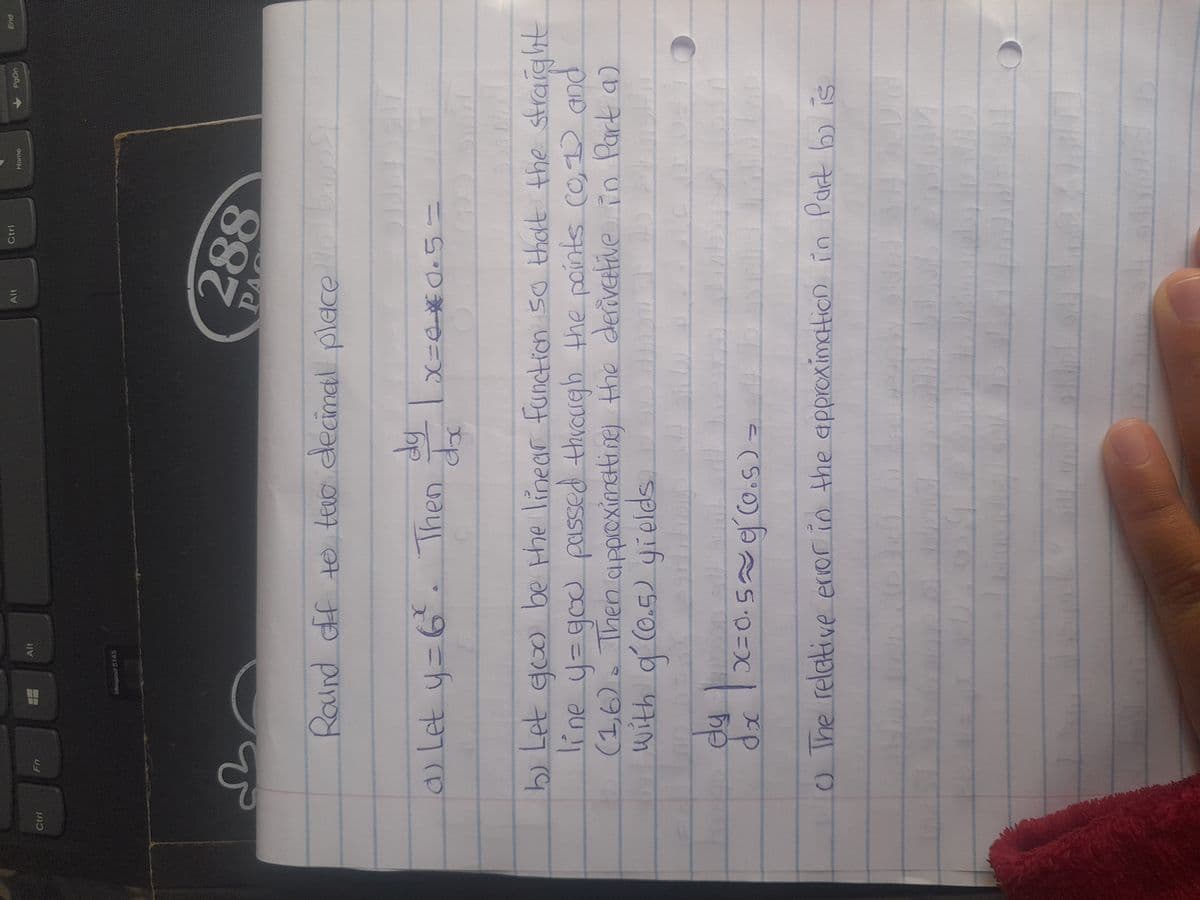 Ctrl Fn Alt Alt Ctrl Home PgDn End
288
Round off to two decimal place
a) Let y=6ˣ. Then dy/dx | x=0.5=
b) Let g(x) be the linear function so that the straight
line y=g(x) passed through the points (0,1) and
(1,6). Then approximating the derivative in Part a)
with g'(0.5) yields
dy/dx | x=0.5≈g'(0.5)=
c) The relative error in the approximation in Part b) is